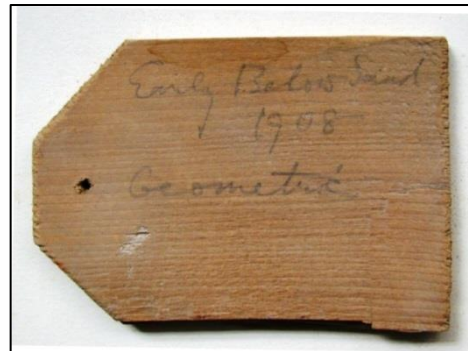 Early Below Sand
1908
Geometric